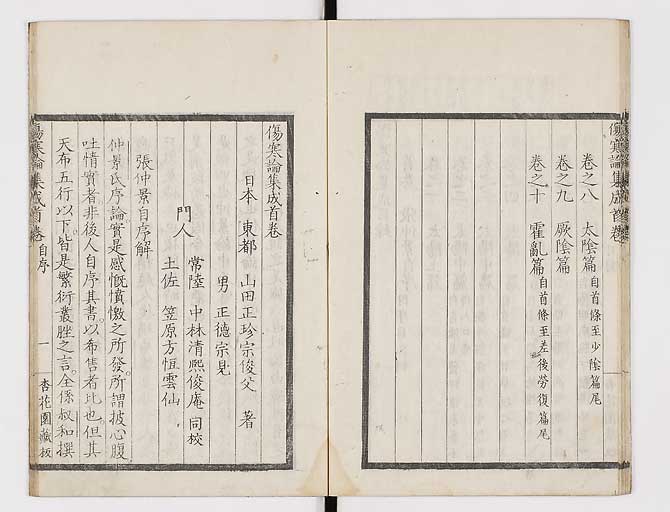 傷寒論集成首卷
卷之八　太陰篇自首條至少陰篇尾
卷之九　厥陰篇
卷之十　霍亂篇自首條至差後勞復篇尾
傷寒論集成首卷
日本　東都　山田正珍宗俊父　著
男　正德宗見
門人
常陸　中林清熙俊庵　同校
土佐　笠原方恒雲仙
張仲景自序解
仲景氏序論實是感慨憤激之所發。所謂披心腹
吐情實者非後人自序其書。以希售者比也。但其
天布五行以下。皆是繁衍叢脞之言。全係叔和撰
傷寒論集成首卷　自序　一　杏花園藏板